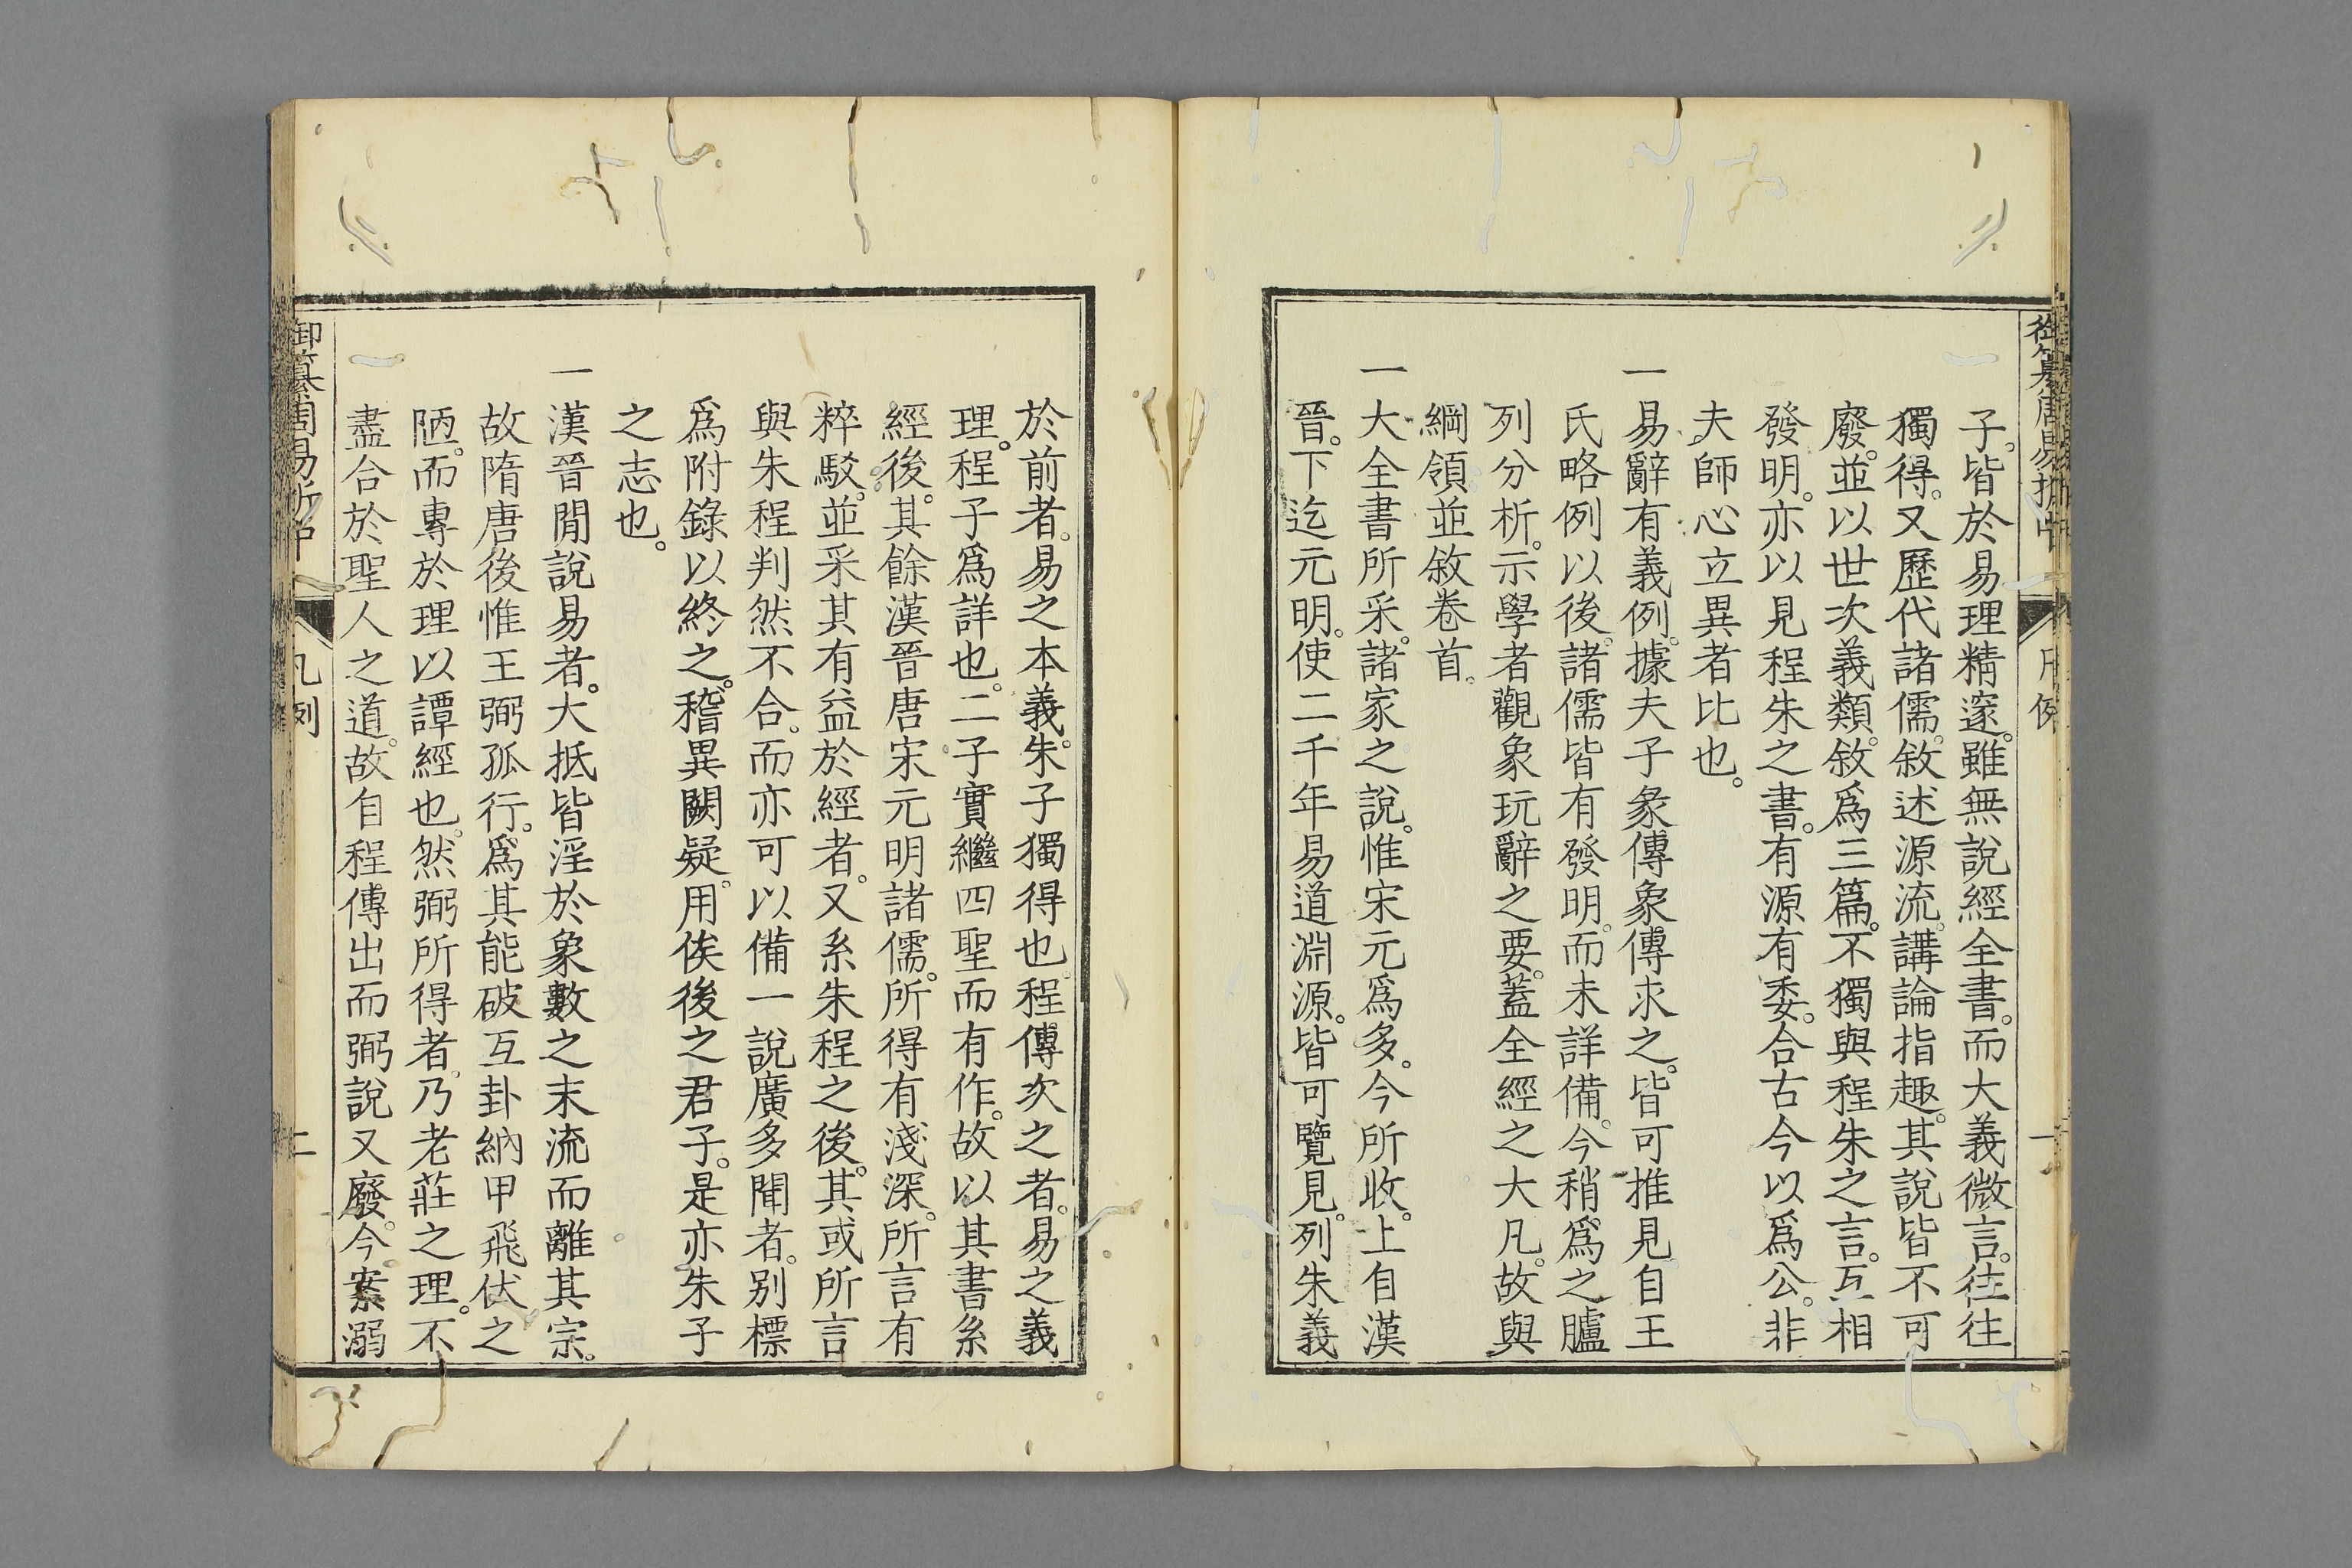 子。皆於易理精邃。雖無說經全書。而大義微言。往往
獨得。又歷代諸儒。敘述源流。講論指趣。其說皆不可
廢。並以世次義類。敘爲三篇。不獨與程朱之言。互相
發明。亦以見程朱之書。有源有委。合古今以爲公。非
夫師心立異者比也。
一易辭有義例。據夫子彖傳象傳求之。皆可推見自王
氏略例以後。諸儒皆有發明。而未詳備。今稍爲之臚
列分析。示學者觀象玩辭之要。蓋全經之大凡。故與
綱領並敘卷首。
一大全書所采。諸家之說。惟宋元爲多。今所收。上自漢
晉。下迄元明。使二千年易道淵源。皆可覽見。列朱義
於前者。易之本義。朱子獨得也。程傳次之者。易之義
理。程子爲詳也。二子實繼四聖而有作。故以其書系
經後。其餘漢晉唐宋元明諸儒。所得有淺深。所言有
粹駁。並采其有益於經者。又系朱程之後。其或所言
與朱程判然不合。而亦可以備一說廣多聞者。別標
爲附錄以終之。稽異闕疑。用俟後之君子。是亦朱子
之志也。
一漢晉閒說易者。大抵皆淫於象數之末流而離其宗。
故隋唐後惟王弼孤行。爲其能破互卦納甲飛伏之
陋。而專於理以譚經也。然弼所得者。乃老莊之理。不
盡合於聖人之道。故自程傳出而弼說又廢。今案溺
御纂周易折中
凡例
二